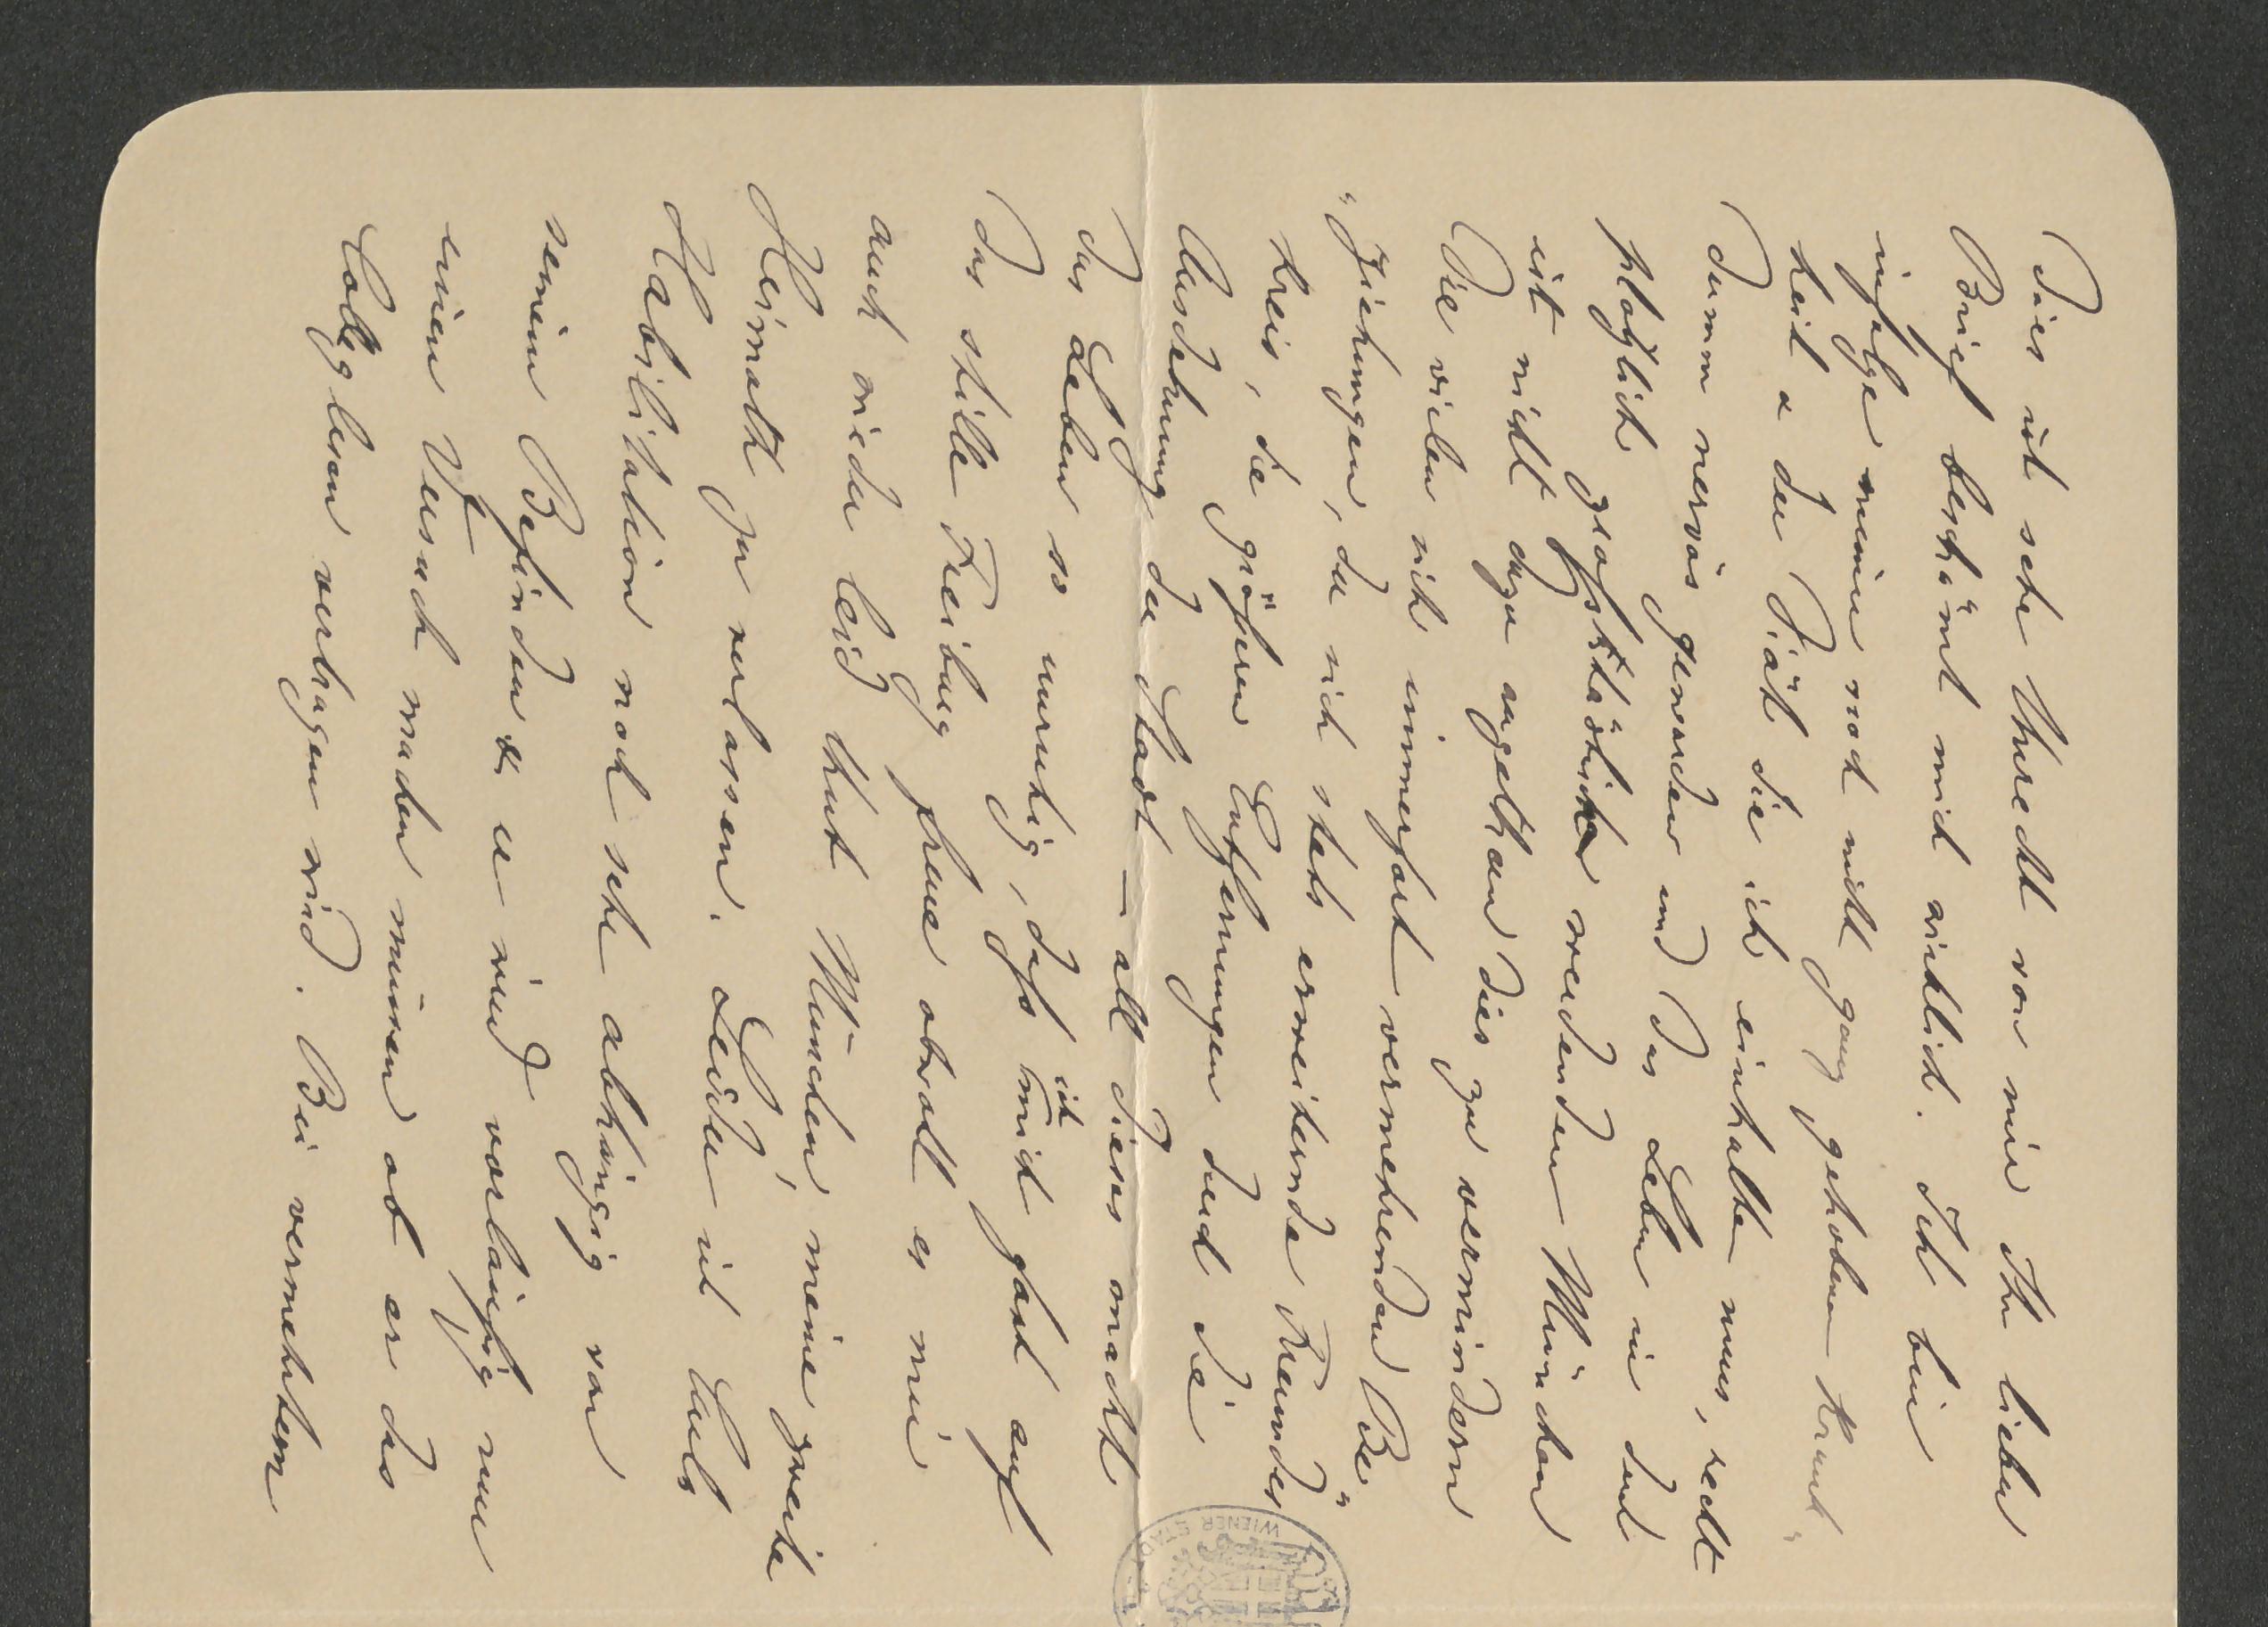 Dies ist sehr Unrecht von mir Ihr lieber
Brief beschämt mich wirklich. Ich bin
infolge meiner noch nicht ganz gehobenen Krank-
heit u der Diät die ich einhalten muss, recht
dumm nervös geworden und das Leben in dem
plötzlich großstädtischer werdenden München
ist nicht dazu angethan dies zu vermindern
Die vielen sich immerfort vermehrenden Be-
ziehungen, der sich stets erweiternde Freundes
kreis, die größeren Entfernungen durch die
Ausdehnung der Stadt – all dieses macht
das Leben so unruhig, daß ich mich fast auf
das stille Freiburg freue obwohl es mir
auch wieder leid thut München, meine zweite
Heimath zu verlassen. Leider ist Huls
Habilitation noch sehr abhängig von
seinem Befinden & er wird vorläufig nur
einen Versuch machen müssen ob er das
Colleg lesen vertragen wird. Bei vermehrtem
WIENER STADT